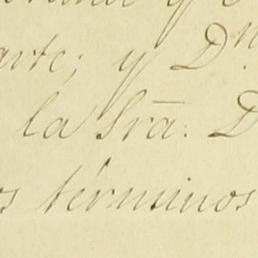 arte; y Dn.
la Sra. D
os términos